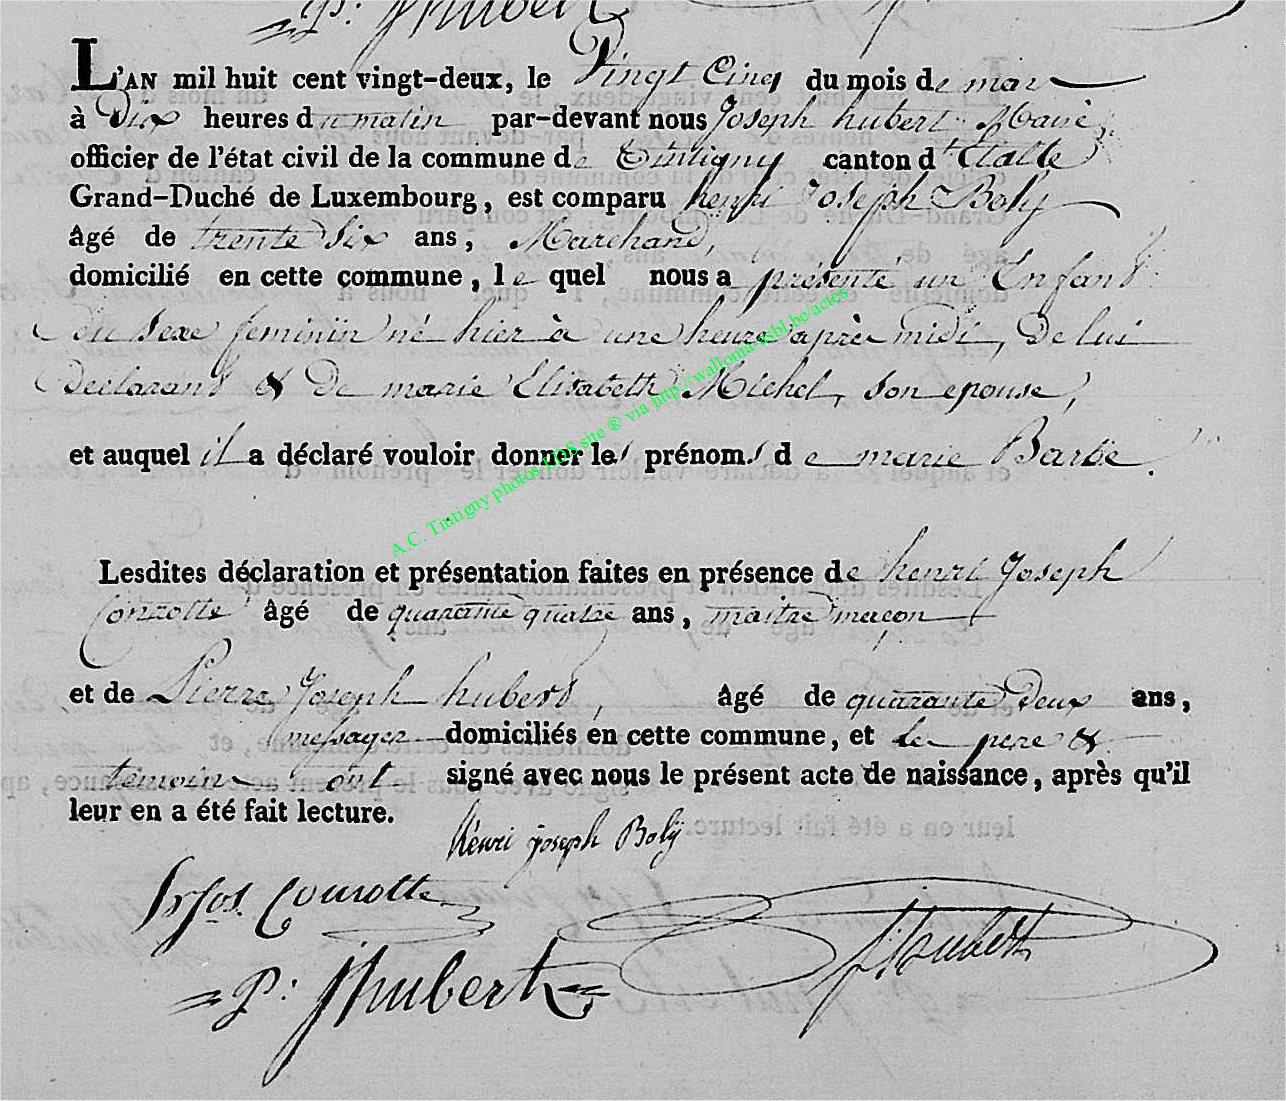 P: Jhubert
L'AN mil huit cent vingt-deux, le Vingt Cinq du mois de mar
à Dix heures du matin par-devant nous Joseph hubert, Maire,
officier de l'état civil de la commune de Tintigny canton d'Etalle
Grand-Duché de Luxembourg, est comparu henri Joseph Bolÿ
âgé de trente six ans, Marchand,
domicilié en cette commune, le quel nous a présenté un Enfant
du sexe feminin né hier à une heure après midi, De lui
Declarant & De marie Elisabeth Michel, son epouse,
et auquel il a déclaré vouloir donner les prénoms de marie Barbe.
A.C. Tintigny photos LDS site ® via http://wallonia-asbl.be/actes
Lesdites déclaration et présentation faites en présence de henri Joseph
Conrotte âgé de quarante quatre ans, maitre maçon
et de Pierre Joseph hubert, âgé de quarante Deux ans,
messager domiciliés en cette commune, et le pere &
temoins ont signé avec nous le présent acte de naissance, après qu'il
leur en a été fait lecture.
henri joseph Bolÿ
Conrotte
P: Jhubert
J: hubert